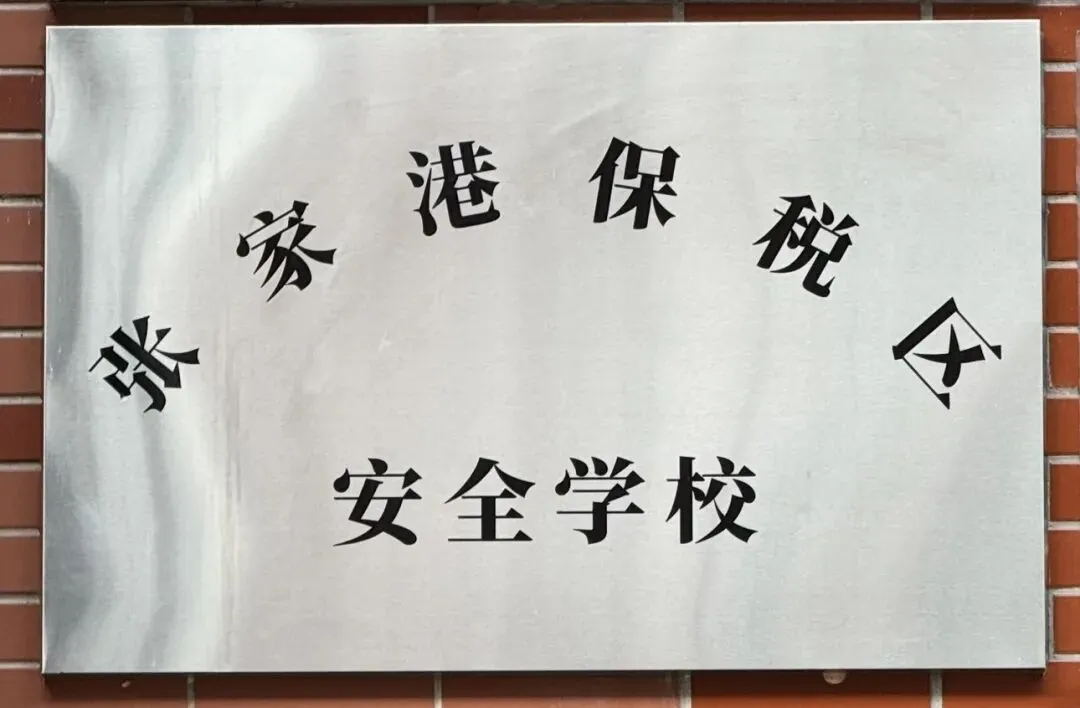 张家港保税区
安全学校